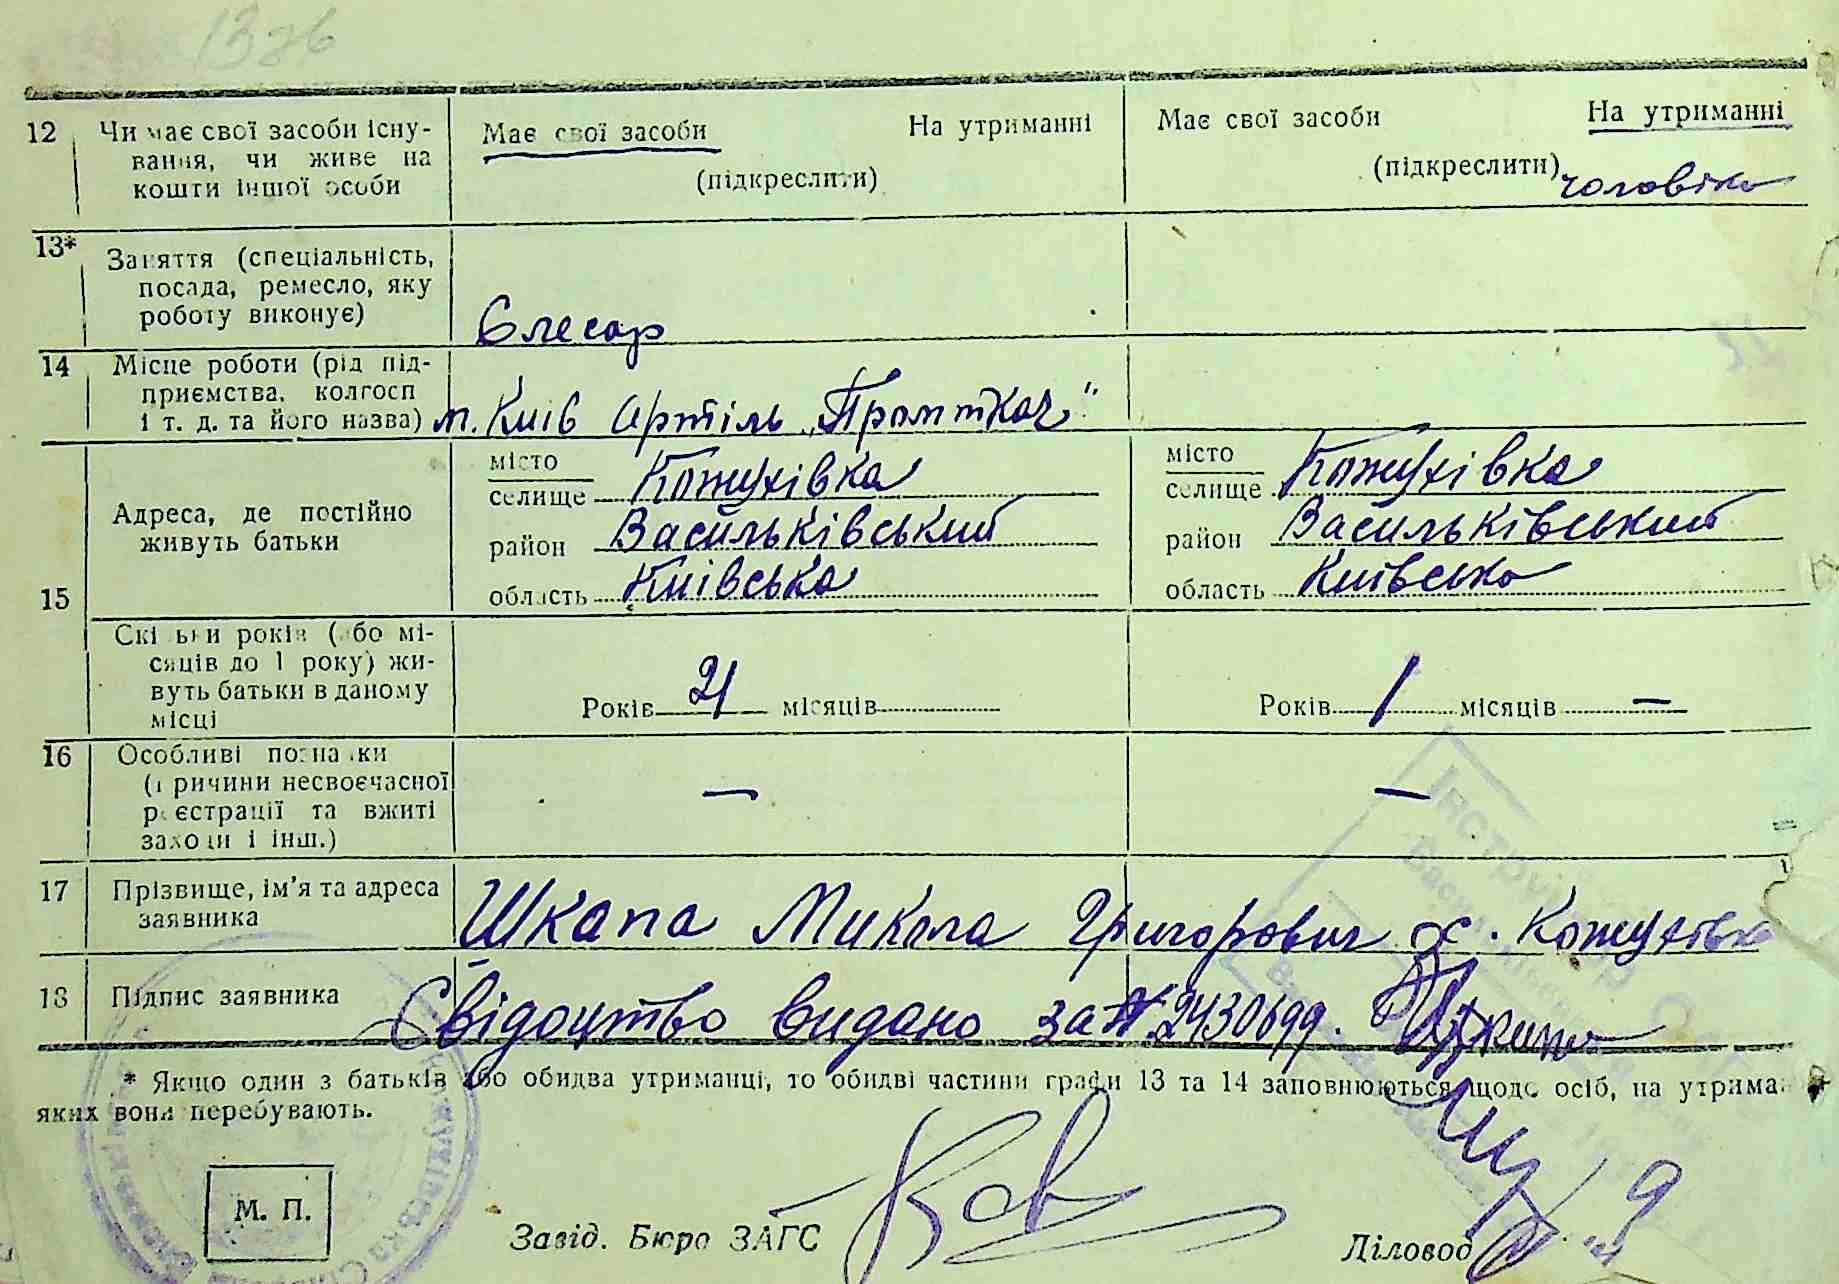 12 Чи має свої засоби існу-
вання, чи живе на
кошти іншої особи
Має свої засоби На утриманні
(підкреслити)
Має свої засоби На утриманні
(підкреслити) чоловіка
13* Заняття (спеціальність,
посада, ремесло, яку
роботу виконує)
Слесар
14 Місце роботи (рід під-
приємства, колгосп
і т. д. та його назва)
м. Київ Артіль „Промткач"
15 Адреса, де постійно
живуть батьки
місто
селище Кожухівка
район Васильківський
область Київська
місто
селище Кожухівка
район Васильківський
область Київсько
Скільки років (або мі-
сяців до 1 року) жи-
вуть батьки в даному
місці
Років 21 місяців
Років 1 місяців —
16 Особливі познаки
(причини несвоєчасної
реєстрації та вжиті
заходи і інш.)
—
—
17 Прізвище, ім'я та адреса
заявника
Шкапа Микола Григорович с. Кожухівка
18 Підпис заявника
Свідоцтво видано за № 2430699.
* Якщо один з батьків або обидва утриманці, то обидві частини графи 13 та 14 заповнюються щодо осіб, на утриман
яких вони перебувають.
М. П.
Завід. Бюро ЗАГС
Діловод